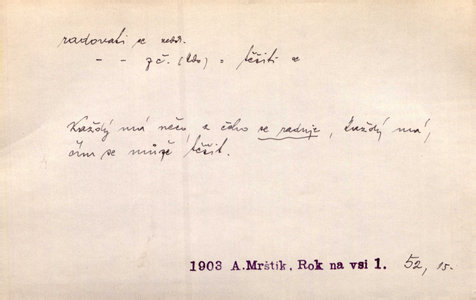 radovati se nedk.
– – z č. (2 p.) = těšiti se
Každý má něco, z čeho se raduje, každý má,
čím se může těšit.
1903 A. Mrštík, Rok na vsi 1. 52, 15.